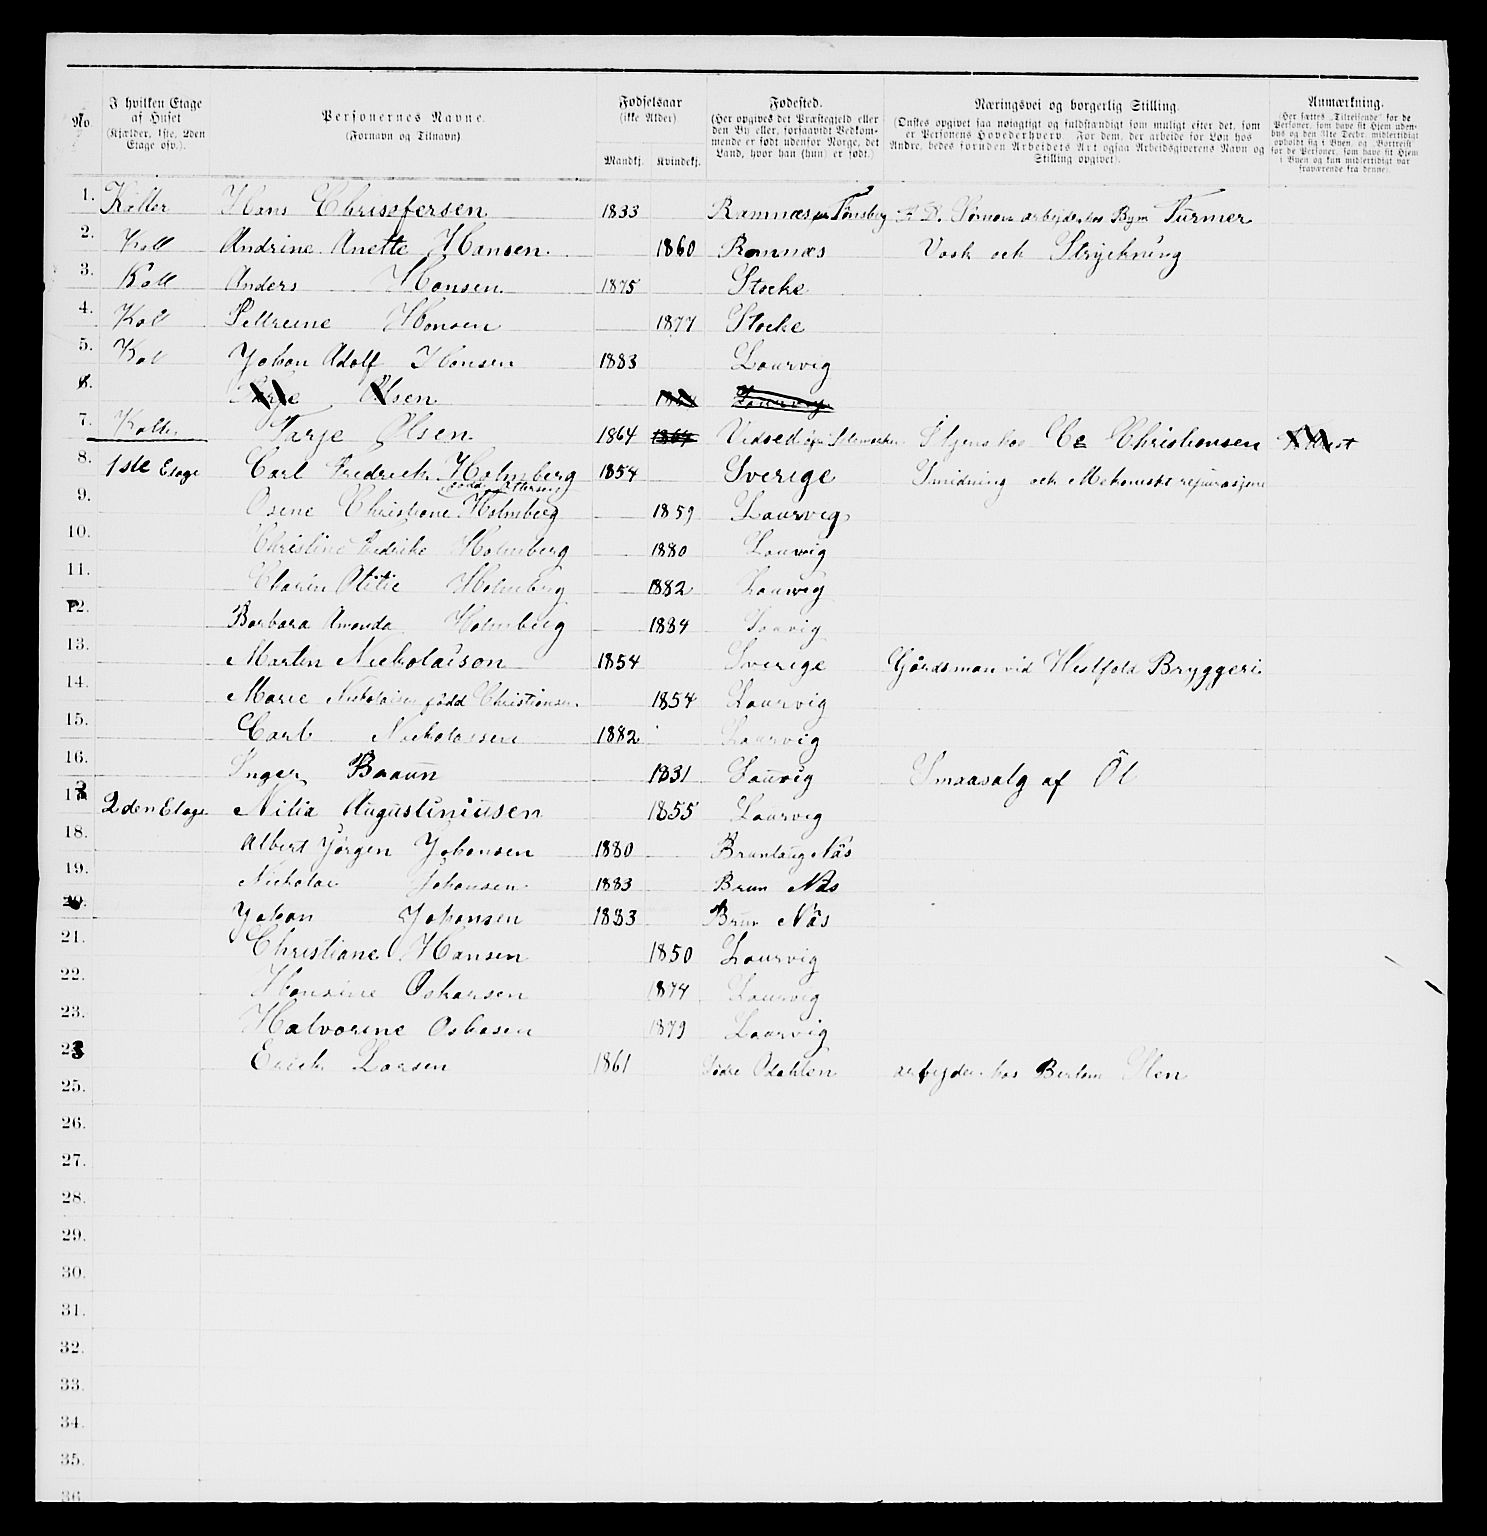 No.
I hvilken Etage af Huset (Kjælder, 1ste, 2den Etage osv.).
Personernes Navne. (Fornavn og Tilnavn)
Fødselsaar (ikke Alder)
Mandkj. Kvindekj.
Fødested. (Her opgives det Præstegjeld eller den By eller, forsaavidt Vedkommende er født udenfor Norge, det Land, hvor han (hun) er født.)
Næringsvei og borgerlig Stilling. (Ønskes opgivet saa nøiagtigt og fuldstændigt som muligt efter det, som er Personens Hovederhverv. For dem, der arbeide for Løn hos Andre, bedes foruden Arbeidets Art ogsaa Arbeidsgiverens Navn og Stilling opgivet).
Anmærkning. (Her sættes „Tilreisende" for de Personer, som have sit Hjem udenbys og den 31te Decbr. midlertidigt opholdt sig i Byen, og „Bortreist" for de Personer, som have sit Hjem i Byen og kun midlertidigt var fraværende fra denne).
1. Kaller Hans Chrisstfersen 1833 Ramnæs Tønsberg arbejder hos Bym Turmer
2. Kall Andrine Anette Hansen 1860 Ramnæs Vask och Strÿckning
3. Kall Anders Hansen 1875 Stocke
4. Kall Hansen 1877 Stocke
5. Kal Johan Adolf Hansen 1883 Laurvig
6. Tarje Olsen Laurvig
7. Kaller Tarje Olsen 1864 1864 hos Christiansen
8. 1ste Etage Carl Fredrick Holmberg 1854 Sverige Smidning och Mekaniskt reparasjon
9. Osine Christiane Holmberg 1859 Laurvig
10. Christine Holmberg 1880 Laurvig
11. Holmberg 1882 Laurvig
12. Barbara Amanda Holmberg 1884 Laurvig
13. Martin Nickolaison 1854 Sverige Gårdsman vid Westfold Bryggeri
14. Marie Nickolaisen född Christiansen 1854 Laurvig
15. Carl Nickolaisen 1882 Laurvig
16. Inger Braaun 1831 Laurvig Smaasalg af Öl
17. 2den Etage Nilia Augustiniusen 1855 Laurvig
18. Albert Jörgen Johansen 1880 Brunlaug Näs
19. Nickolai Johansen 1883 Brun Näs
20. Johan Johansen 1883 Brun Näs
21. Christiane Hansen 1850 Laurvig
22. Hansine Oskarsen 1874 Laurvig
23. Halvorine Oskasen 1879 Laurvig
24. Erick Larsen 1861 Södre Odahlen arbejder hos
25.
26.
27.
28.
29.
30.
31.
32.
33.
34.
35.
36